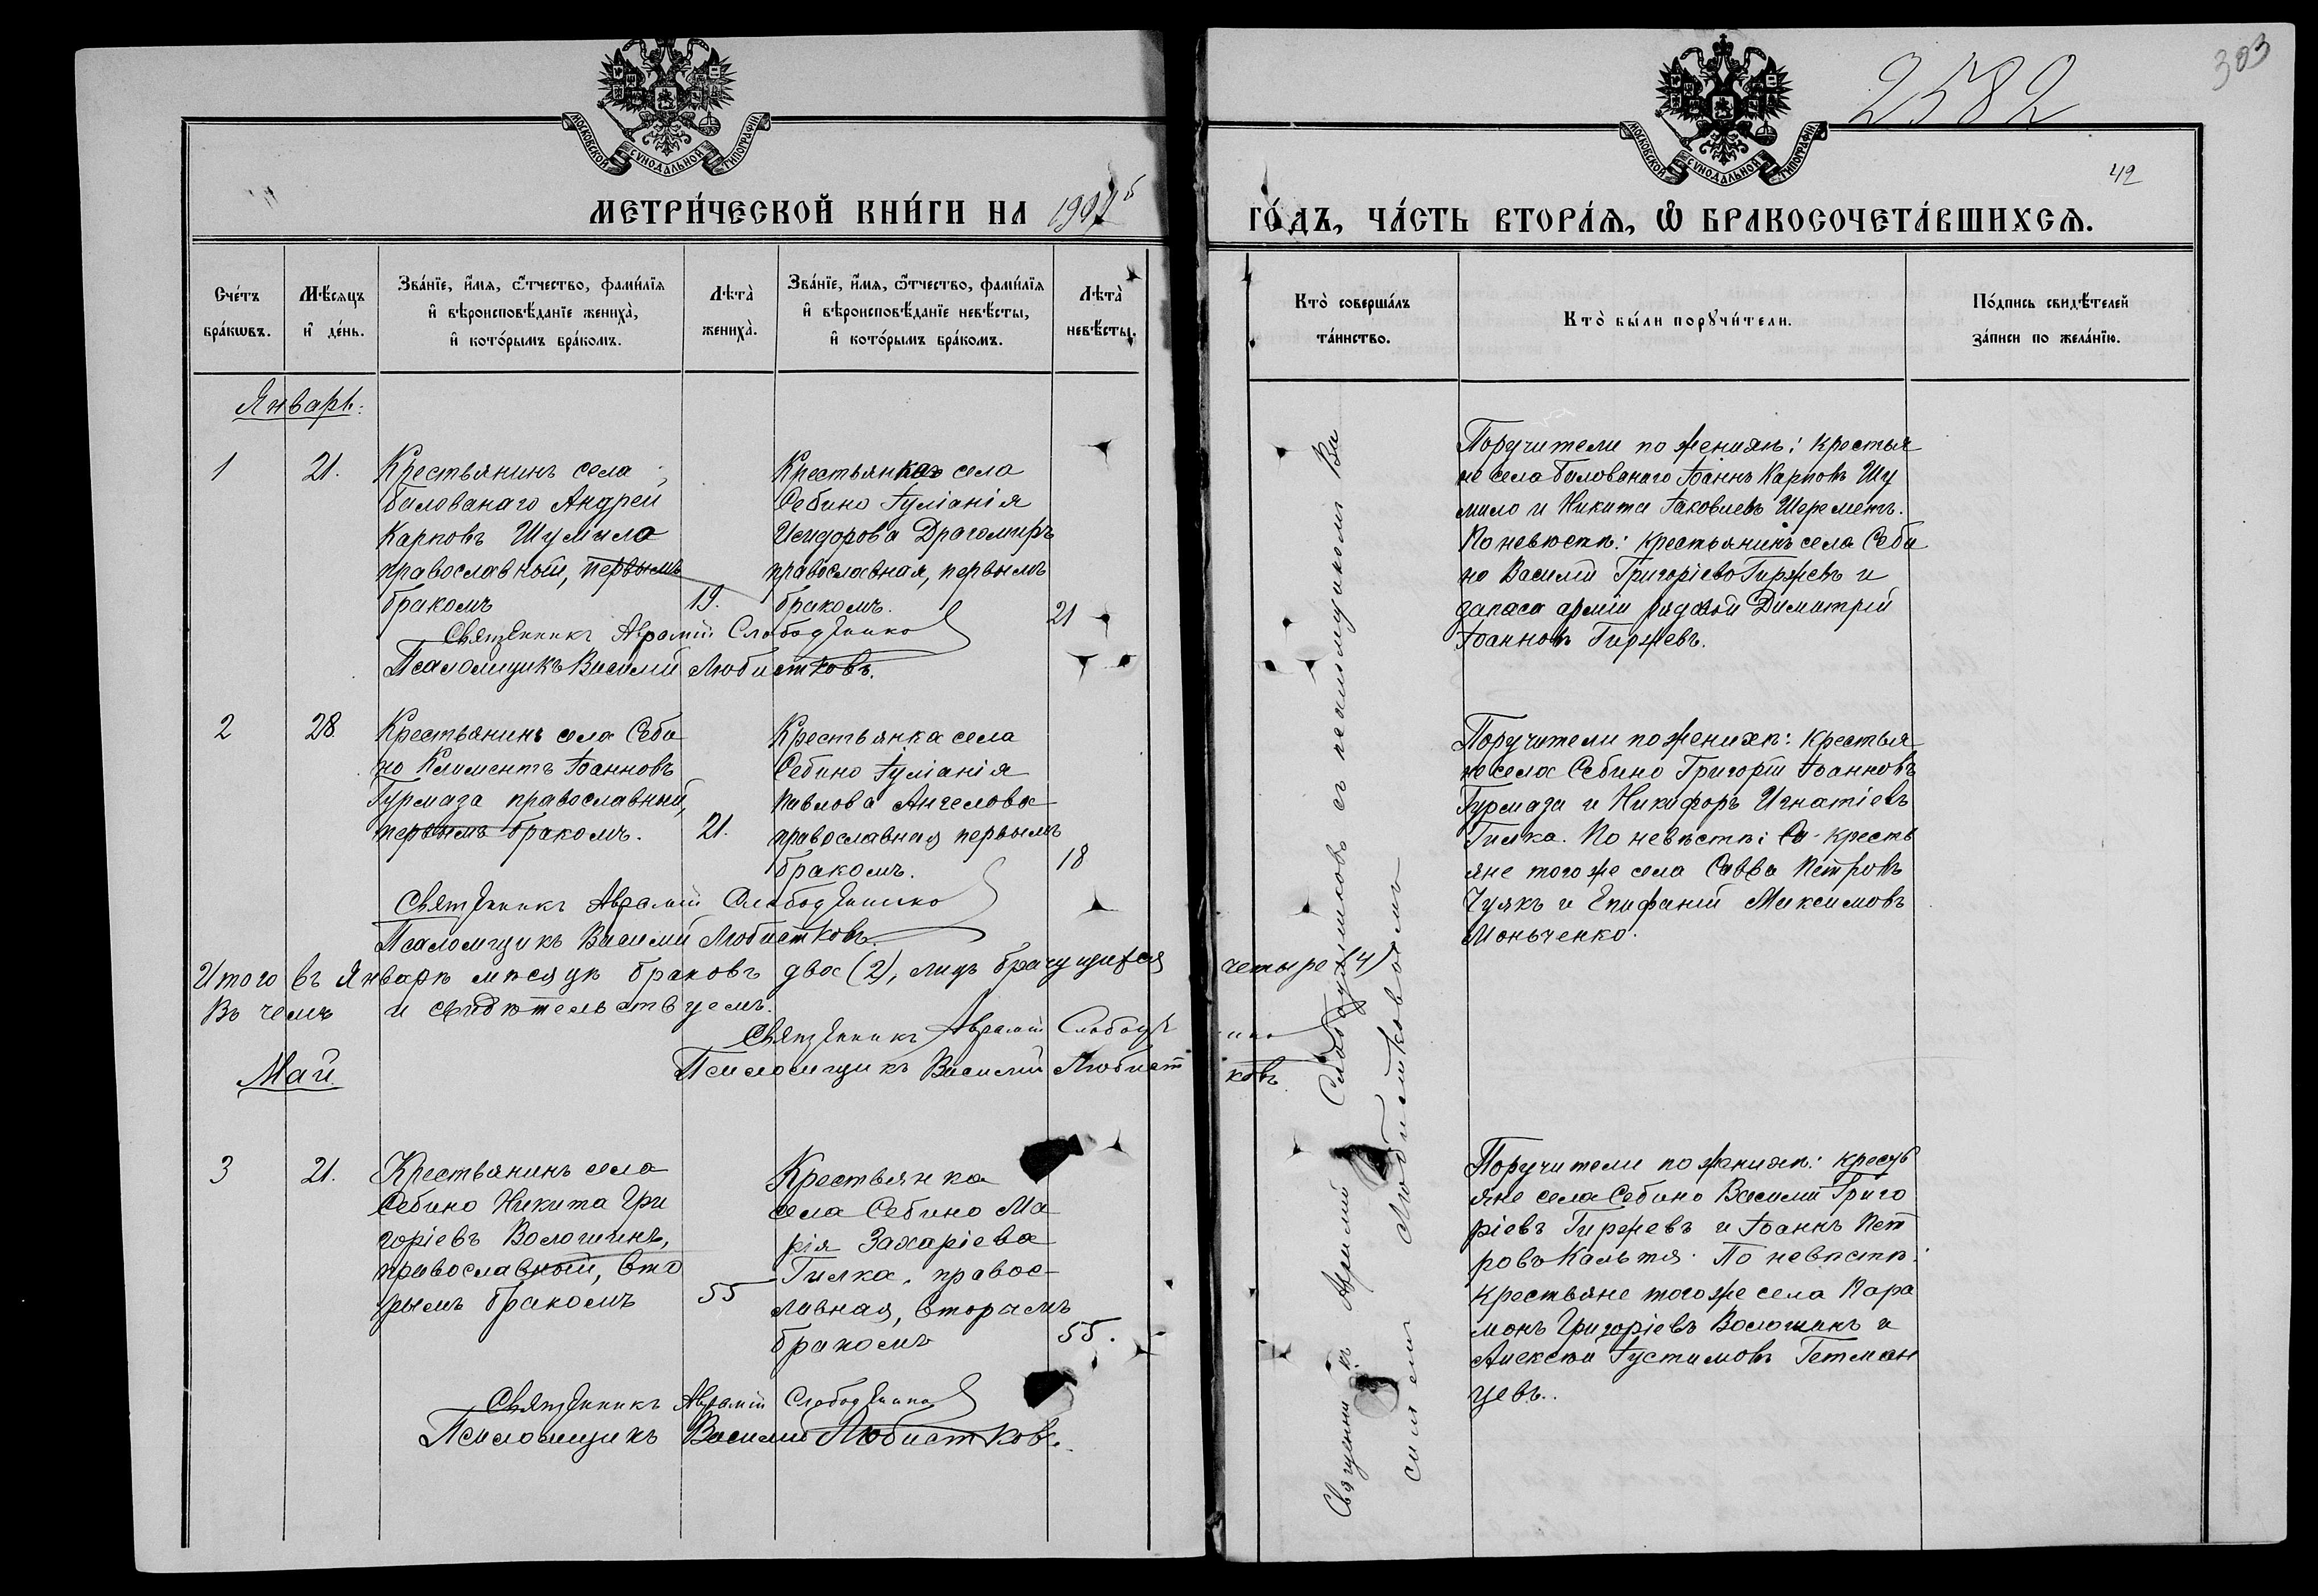 2582
303
42
МОСКОВСКОЙ СУНОДАЛЬНОЙ ТИПОГРАФІИ
МОСКОВСКОЙ СУНОДАЛЬНОЙ ТИПОГРАФІИ
МЕТРИ́ЧЕСКОЙ КНИ́ГИ НА
ГО́ДЪ, ЧА́СТЬ ВТОРА́Я, Ѽ БРАКОСОЧЕТА́ВШИХСЯ.
Сче́тъ бра́кѡвъ.
Мѣ́сяцъ и҆ де́нь.
Зва́нїе, и҆́мя, ѻ҆́тчество, фами́лїя и҆ вѣроисповѣ́данїе жениха̀, и҆ кото́рымъ бра́комъ.
Лѣта̀ жениха̀.
Зва́нїе, и҆́мя, ѻ҆́тчество, фами́лїя и҆ вѣроисповѣ́данїе невѣ́сты, и҆ кото́рымъ бра́комъ.
Лѣта̀ невѣ́сты.
Кто̀ соверша́лъ та́инство.
Кто̀ бы́ли порꙋчи́тели.
По́дпись свидѣ́телей за́писи по жела́нїю.
Январь.
1
21.
Крестьянинъ села
Балованаго Андрей
Карповъ Шумило
православный, первымъ
бракомъ
19.
Крестьянка села
Себино Іуліанія
Исидорова Драгомиръ
православная, первымъ
бракомъ.
21
Поручители по женихѣ: крестья
не села Балованаго Іоаннъ Карповъ Шу
мило и Никита Іаковлевъ Шереметъ.
По невѣстѣ: крестьянинъ села Себи
но Василій Григоріевъ Гиржевъ и
запаса арміи рядовой Димитрій
Іоанновъ Гиржевъ.
Священникъ Аврамій Слободянико
Псаломщикъ Василій Любистковъ.
2
28.
Крестьянинъ села Себи
но Климентъ Іоанновъ
Гурмаза православный,
первымъ бракомъ.
21.
Крестьянка села
Себино Іуліанія
Павлова Ангелова
православная первымъ
бракомъ.
18
Поручители по женихѣ: крестья
не села Себино Григорій Іоанновъ
Гурмаза и Никифоръ Игнатіевъ
Гилка. По невѣстѣ: кресть
яне того же села Савва Петровъ
Чуякъ и Епифаній Максимовъ
Моньченко.
Священникъ Аврамій
Псаломщикъ Василій Любистковъ.
Итого въ Январѣ мѣсяцѣ браковъ два (2), лицъ брачущихся четыре (4)
Въ чемъ и свидѣтельствуемъ.
Священникъ Аврамій
Псаломщикъ Василій Любистковъ.
Май.
3
21.
Крестьянинъ села
Себино Никита Гри
горіевъ Волошинъ,
православный, вто
рымъ бракомъ
55
Крестьянка
села Себино Ма
рія Захаріева
Гилка, правос
лавная, вторымъ
бракомъ
55.
Поручители по женихѣ: кресть
яне села Себино Василій Григо
ріевъ Гиржевъ и Іоаннъ Пет
ровъ Кальтя. По невѣстѣ:
крестьяне того же села Пара
монъ Григоріевъ Волошинъ и
Алексѣй Іустимовъ Гетман
цевъ.
Священникъ Аврамій
Псаломщикъ Василій Любистковъ.
Священникъ Аврамій
съ псаломщикомъ Ва
силіемъ Любистковымъ